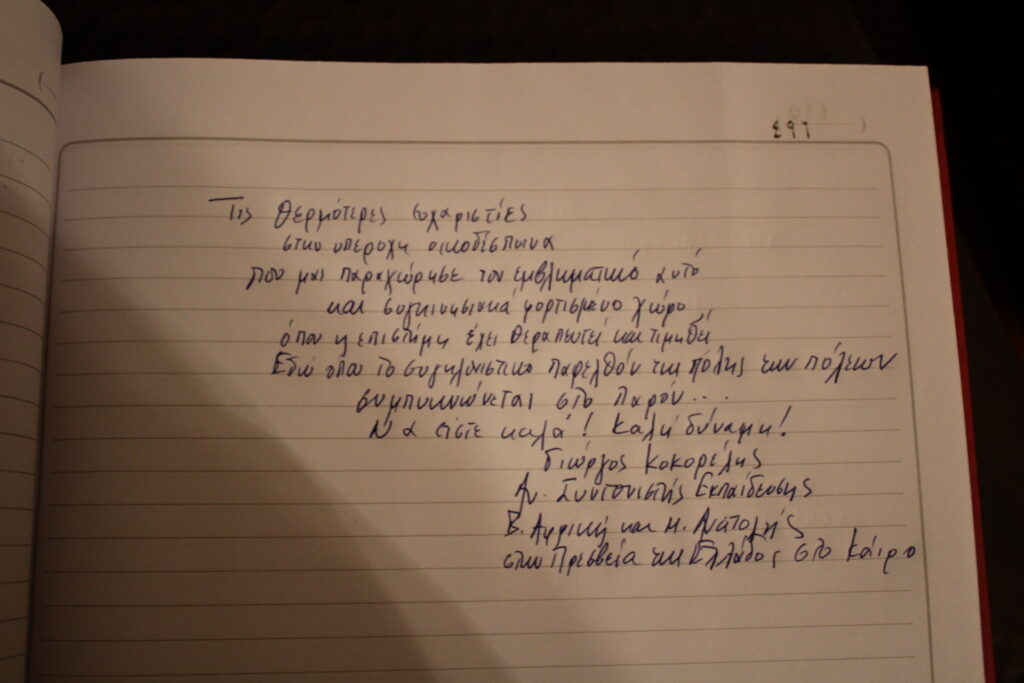 εqτ
Τις θερμότερες ευχαριστίες
στην υπέροχη οικοδέσποινα
που μας παραχώρησε τον εμβληματικό αυτό
και συγκινησιακά φορτισμένο χώρο
όπου η επιστήμη έχει θεραπευτεί και τιμηθεί
Εδώ όπου το συγκλονιστικό παρελθόν της πόλης των πόλεων
συμπυκνώνεται στο παρόν...
Να είστε καλά! Καλή δύναμη!
Γιώργος Κοκορέλης
Αν. Συντονιστής Εκπαίδευσης
Β. Αφρική και Μ. Ανατολής
στην Πρεσβεία της Ελλάδος στο Κάιρο